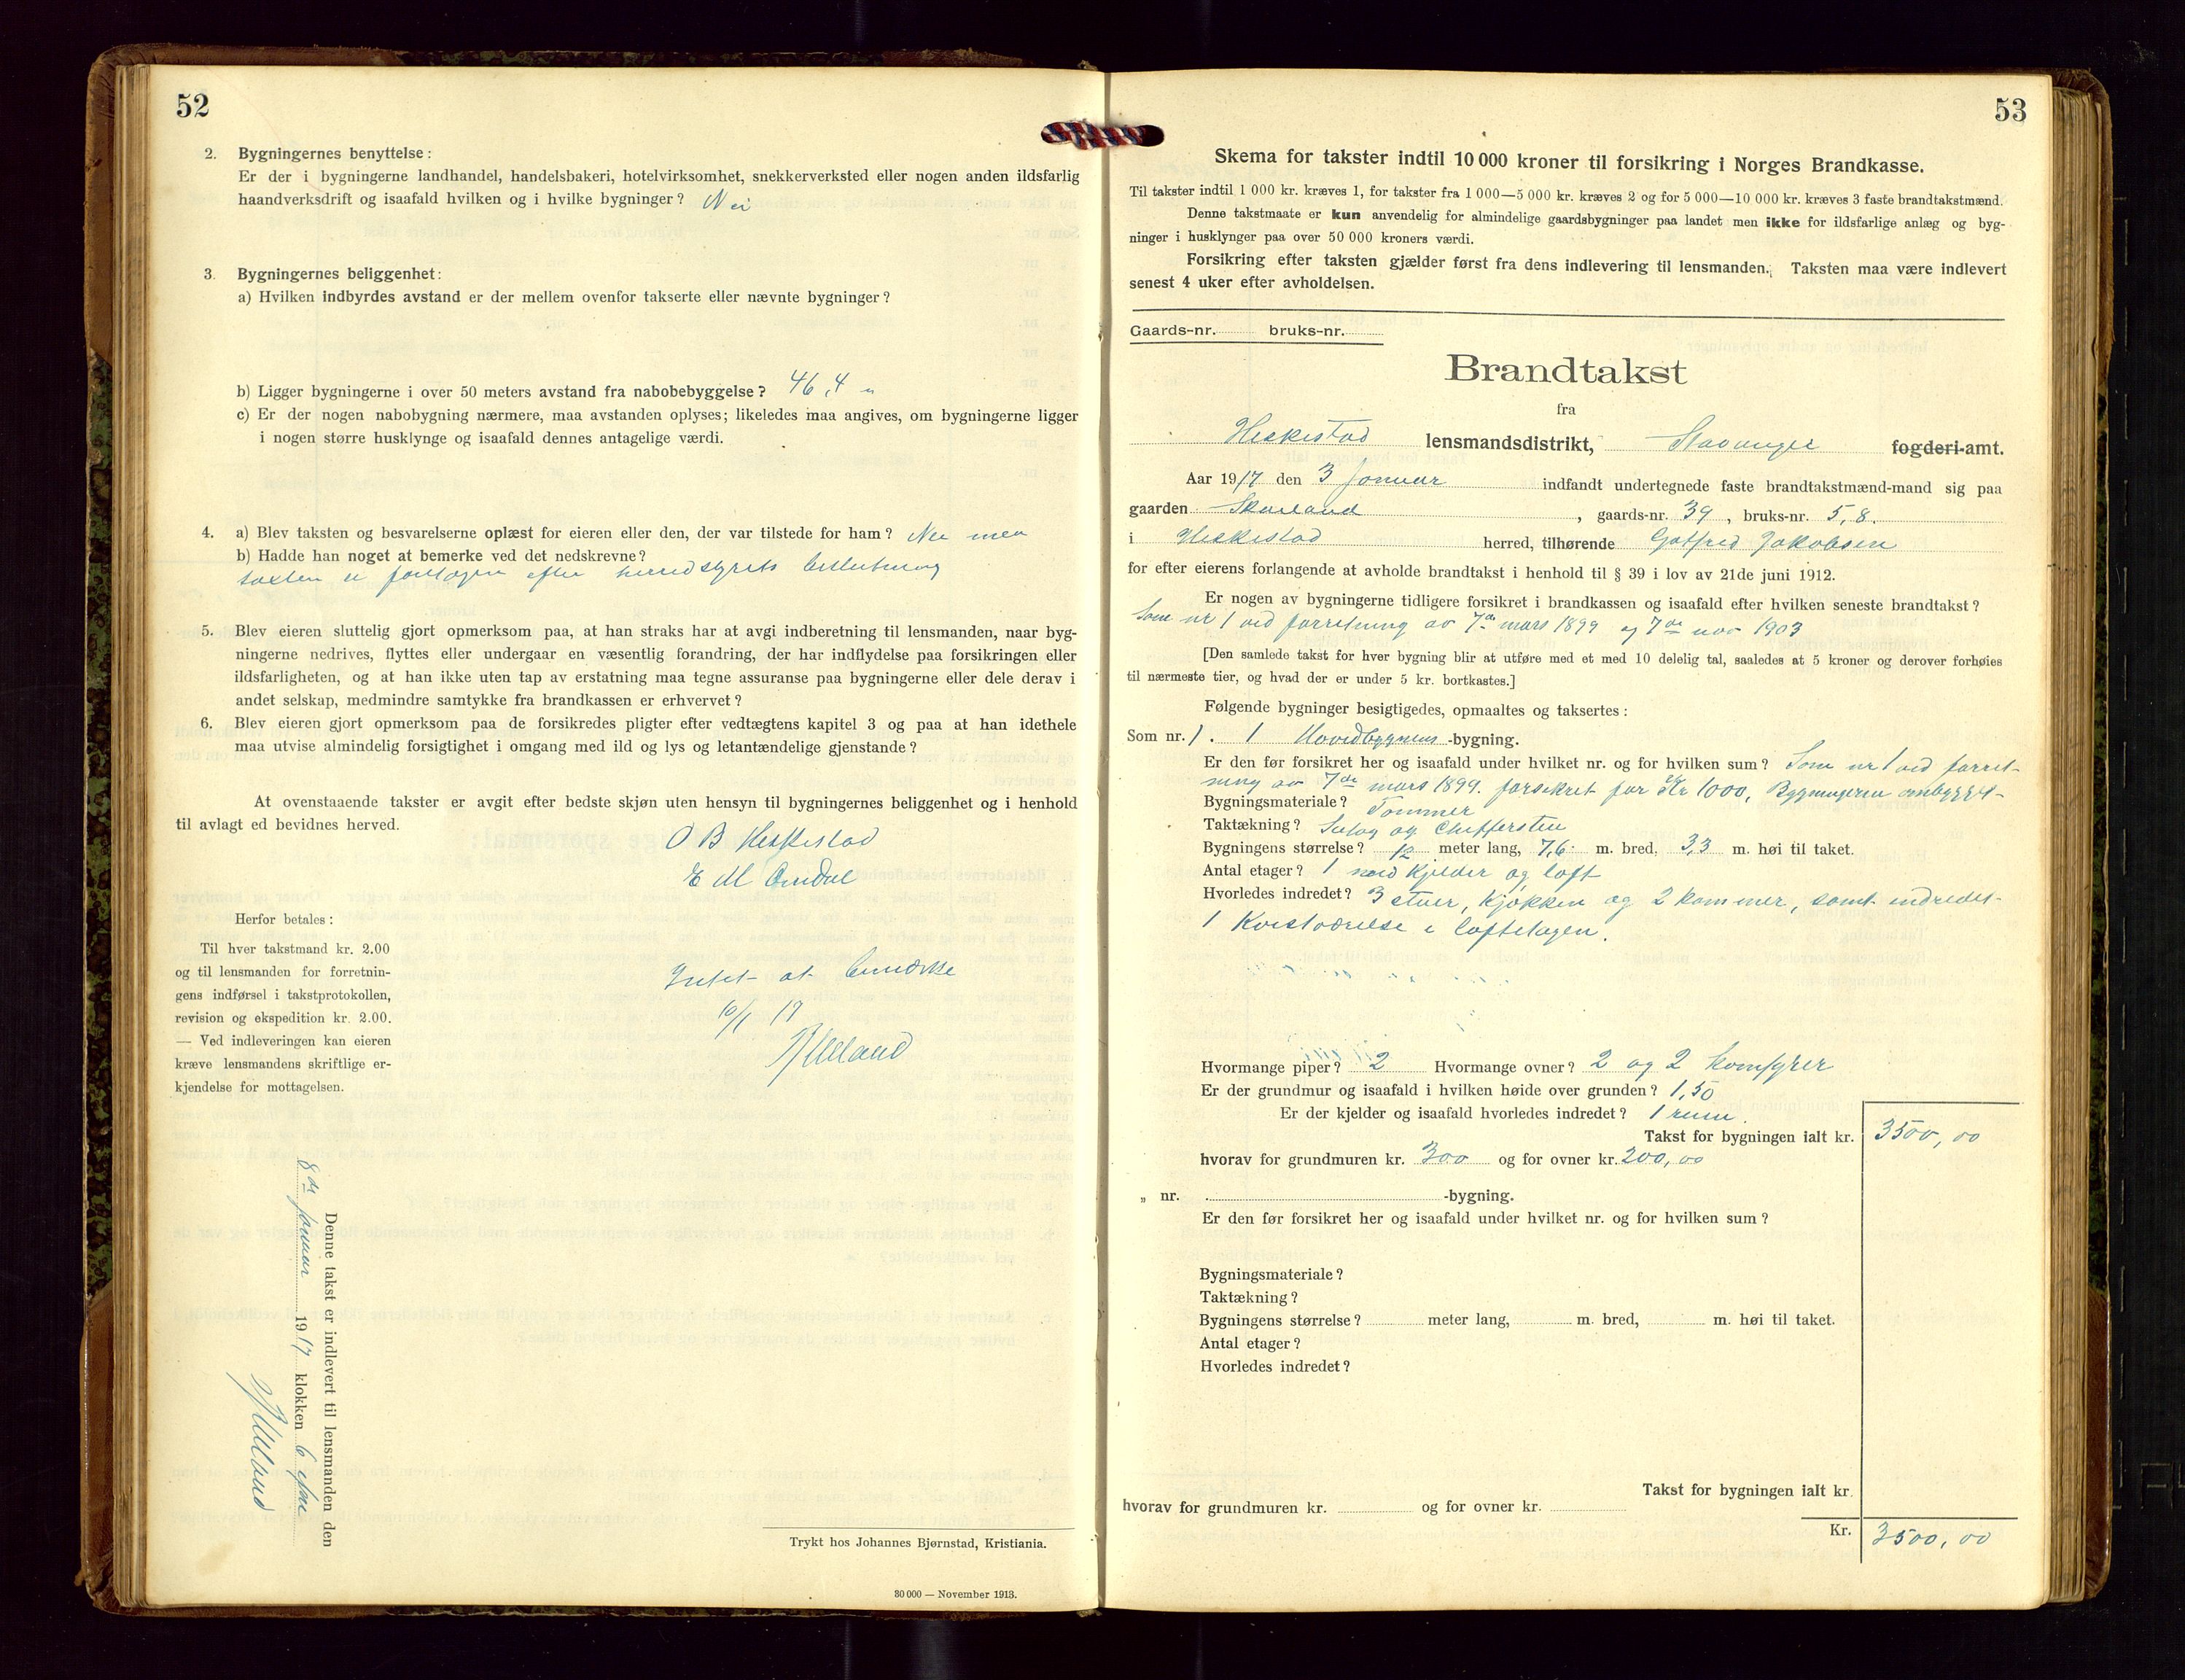 52
2. Bygningernes benyttelse:
Er der i bygningerne landhandel, handelsbakeri, hotelvirksomhet, snekkerverksted eller nogen anden ildsfarlig
haandverksdrift og isaafald hvilken og i hvilke bygninger? Nei
3. Bygningernes beliggenhet:
a) Hvilken indbyrdes avstand er der mellem ovenfor takserte eller nævnte bygninger?
b) Ligger bygningerne i over 50 meters avstand fra nabobebyggelse? 46,4 m
c) Er der nogen nabobygning nærmere, maa avstanden oplyses; likeledes maa angives, om bygningerne ligger
i nogen større husklynge og isaafald dennes antagelige værdi.
4. a) Blev taksten og besvarelserne oplæst for eieren eller den, der var tilstede for ham? Nei men
b) Hadde han noget at bemerke ved det nedskrevne?
taxten er foretagen efter herredstyrets beslutning
5. Blev eieren sluttelig gjort opmerksom paa, at han straks har at avgi indberetning til lensmanden, naar byg-
ningerne nedrives, flyttes eller undergaar en væsentlig forandring, der har indflydelse paa forsikringen eller
ildsfarligheten, og at han ikke uten tap av erstatning maa tegne assuranse paa bygningerne eller dele derav i
andet selskap, medmindre samtykke fra brandkassen er erhvervet?
6. Blev eieren gjort opmerksom paa de forsikredes pligter efter vedtægtens kapitel 3 og paa at han idethele
maa utvise almindelig forsigtighet i omgang med ild og lys og letantændelige gjenstande?
At ovenstaaende takster er avgit efter bedste skjøn uten hensyn til bygningernes beliggenhet og i henhold
til avlagt ed bevidnes herved.
O B Heskestad
E M Omdal
Herfor betales:
Til hver takstmand kr. 2.00
og til lensmanden for forretnin-
gens indførsel i takstprotokollen,
revision og ekspedition kr. 2.00.
— Ved indleveringen kan eieren
kræve lensmandens skriftlige er-
kjendelse for mottagelsen.
Intet at bemærke
10/1 17
Denne takst er indlevert til lensmanden den
8de januar 1917 klokken 6 efm
Trykt hos Johannes Bjørnstad, Kristiania.
30 000 — November 1913.
53
Skema for takster indtil 10 000 kroner til forsikring i Norges Brandkasse.
Til takster indtil 1 000 kr. kræves 1, for takster fra 1 000—5 000 kr. kræves 2 og for 5 000—10 000 kr. kræves 3 faste brandtakstmænd.
Denne takstmaate er kun anvendelig for almindelige gaardsbygninger paa landet men ikke for ildsfarlige anlæg og byg-
ninger i husklynger paa over 50 000 kroners værdi.
Forsikring efter taksten gjælder først fra dens indlevering til lensmanden. Taksten maa være indlevert
senest 4 uker efter avholdelsen.
Gaards-nr. bruks-nr.
Brandtakst
fra
Heskestad lensmandsdistrikt, Stavanger fogderi-amt.
Aar 1917 den 3 Januar indfandt undertegnede faste brandtakstmænd-mand sig paa
gaarden Skarland, gaards-nr. 39, bruks-nr. 5,8.
i Heskestad herred, tilhørende Gotfred Jakobsen
for efter eierens forlangende at avholde brandtakst i henhold til § 39 i lov av 21de juni 1912.
Er nogen av bygningerne tidligere forsikret i brandkassen og isaafald efter hvilken seneste brandtakst?
Som nr 1 ved forretning av 7de mars 1899 og 7de nov 1903
[Den samlede takst for hver bygning blir at utføre med et med 10 delelig tal, saaledes at 5 kroner og derover forhøies
til nærmeste tier, og hvad der er under 5 kr. bortkastes.]
Følgende bygninger besigtigedes, opmaaltes og taksertes:
Som nr. 1. 1 Hovedbygnins-bygning.
Er den før forsikret her og isaafald under hvilket nr. og for hvilken sum? Som nr 1 ved forret-
ning av 7de mars 1899. forsikret for Kr 1000, Bygningeren ombygget-
Bygningsmateriale? Tømmer
Taktækning? Sutag og Chiffersten
Bygningens størrelse? 12 meter lang, 7,6 m. bred, 3,3 m. høi til taket.
Antal etager? 1 med Kjelder og loft
Hvorledes indredet? 3 stuer, Kjøkken og 2 kammer, samt indredet-
1 Kvistværelse i loftetagen.
Hvormange piper? 2 Hvormange ovner? 2 og 2 komfyrer
Er der grundmur og isaafald i hvilken høide over grunden? 1,50
Er der kjelder og isaafald hvorledes indredet? 1 rum.
Takst for bygningen ialt kr. 3500,00
hvorav for grundmuren kr. 300 og for ovner kr. 200,00
„ nr. -bygning.
Er den før forsikret her og isaafald under hvilket nr. og for hvilken sum?
Bygningsmateriale?
Taktækning?
Bygningens størrelse? meter lang, m. bred, m. høi til taket.
Antal etager?
Hvorledes indredet?
Takst for bygningen ialt kr.
hvorav for grundmuren kr. og for ovner kr.
Kr. 3500,00